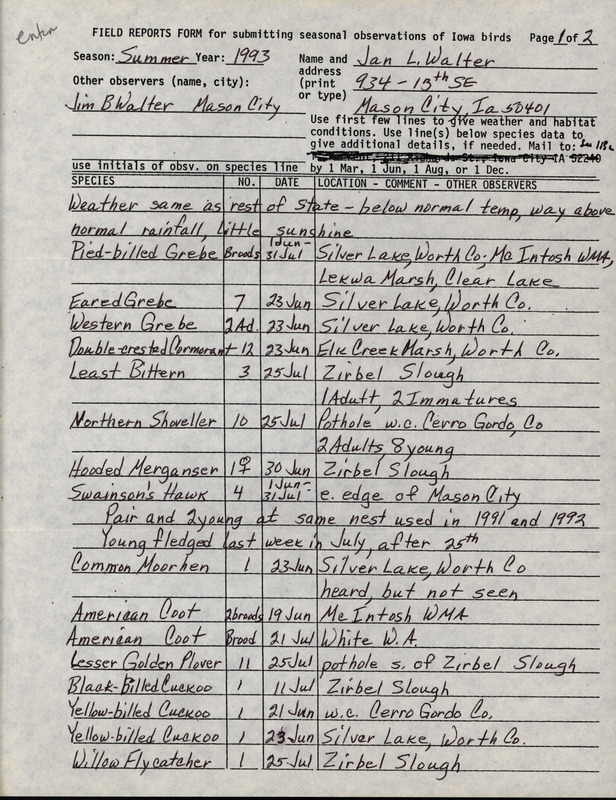 entr
FIELD REPORTS FORM for submitting seasonal observations of Iowa birds Page 1 of 2
Season: Summer Year: 1993
Name and address (print or type) Jan L. Walter
934 - 13th SE
Mason City, Ia 50401
Other observers (name, city):
Jim B Walter Mason City
Use first few lines to give weather and habitat
conditions. Use line(s) below species data to
give additional details, if needed. Mail to:
Iowa City IA 52240
use initials of obsv. on species line by 1 Mar, 1 Jun, 1 Aug, or 1 Dec.
SPECIES NO. DATE LOCATION - COMMENT - OTHER OBSERVERS
Weather same as rest of state - below normal temp, way above
normal rainfall, little sunshine
Pied-billed Grebe Broods 1Jun-31Jul Silver Lake, Worth Co; Mc Intosh WMA,
Lekwa Marsh, Clear Lake
Eared Grebe 7 23 Jun Silver Lake, Worth Co.
Western Grebe 2Ad. 23 Jun Silver Lake, Worth Co.
Double-crested Cormorant 12 23 Jun Elk Creek Marsh, Worth Co.
Least Bittern 3 25 Jul Zirbel Slough
1 Adult, 2 Immatures
Northern Shoveller 10 25 Jul Pothole w.c. Cerro Gordo, Co
2 Adults, 8 young
Hooded Merganser 1♀ 30 Jun Zirbel Slough
Swainson's Hawk 4 1Jun-31Jul e. edge of Mason City
Pair and 2 young at same nest used in 1991 and 1992
Young fledged last week in July, after 25th
Common Moorhen 1 23 Jun Silver Lake, Worth Co
heard, but not seen
American Coot 2broods 19 Jun Mc Intosh WMA
American Coot Brood 21 Jul White W.A.
Lesser Golden Plover 11 25 Jul pothole s. of Zirbel Slough
Black-Billed Cuckoo 1 11 Jul Zirbel Slough
Yellow-billed Cuckoo 1 21 Jun w.c. Cerro Gordo Co.
Yellow-billed Cuckoo 1 23 Jun Silver Lake, Worth Co.
Willow Flycatcher 1 25 Jul Zirbel Slough